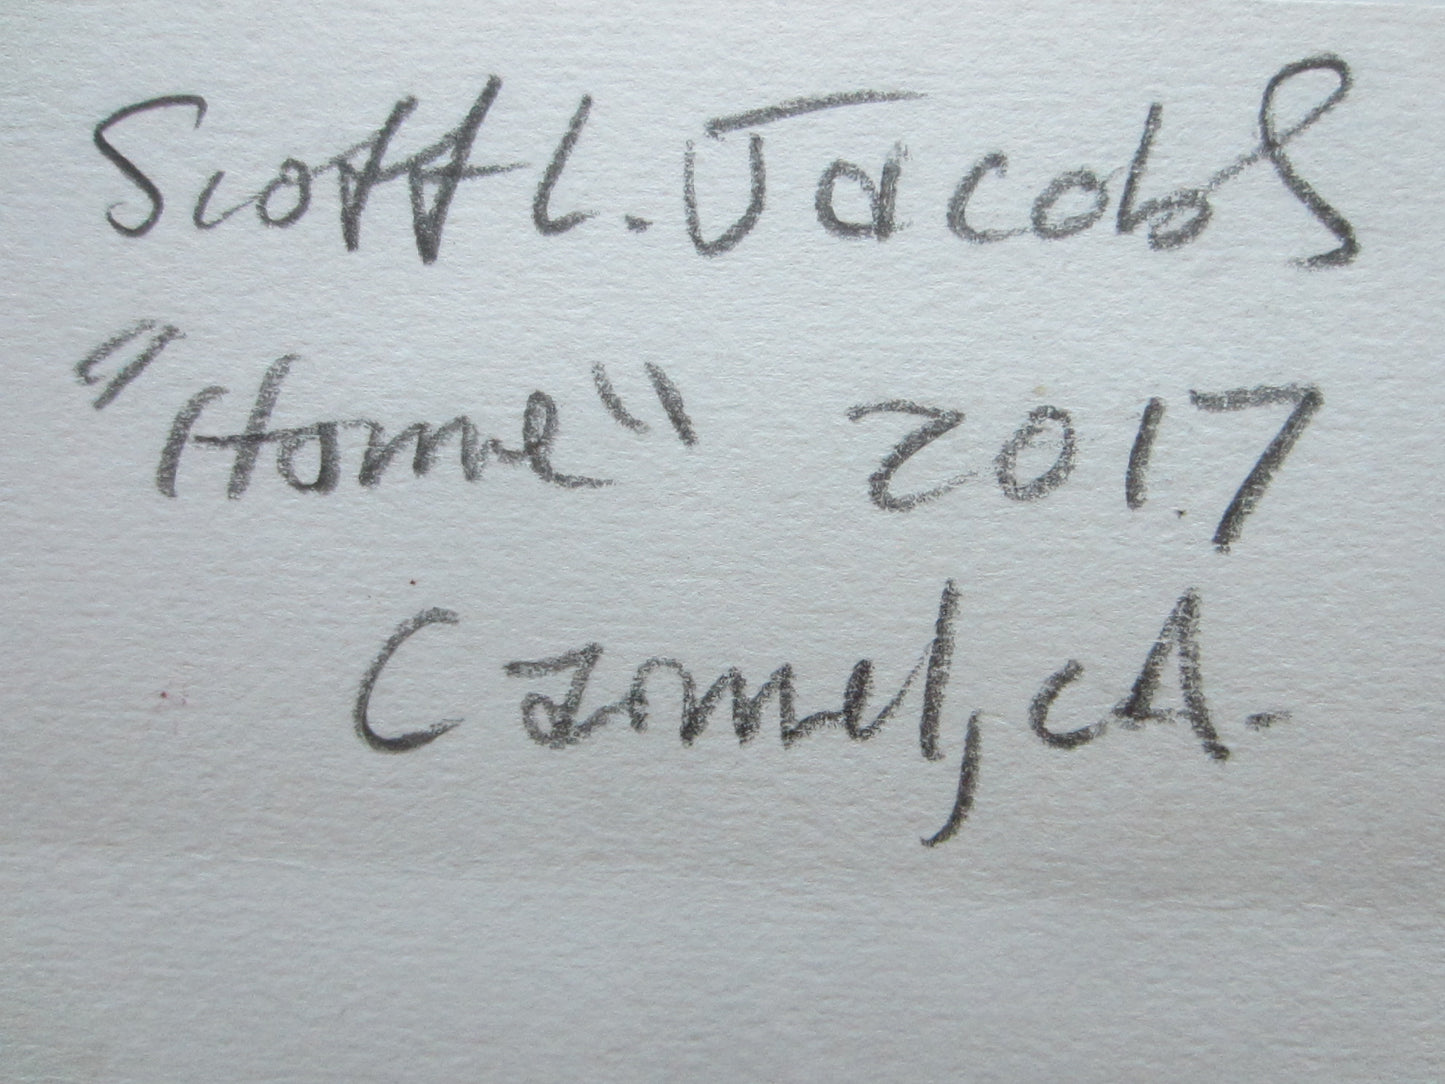 Scott L. Jacobs
"Home" 2017
Carmel, CA.